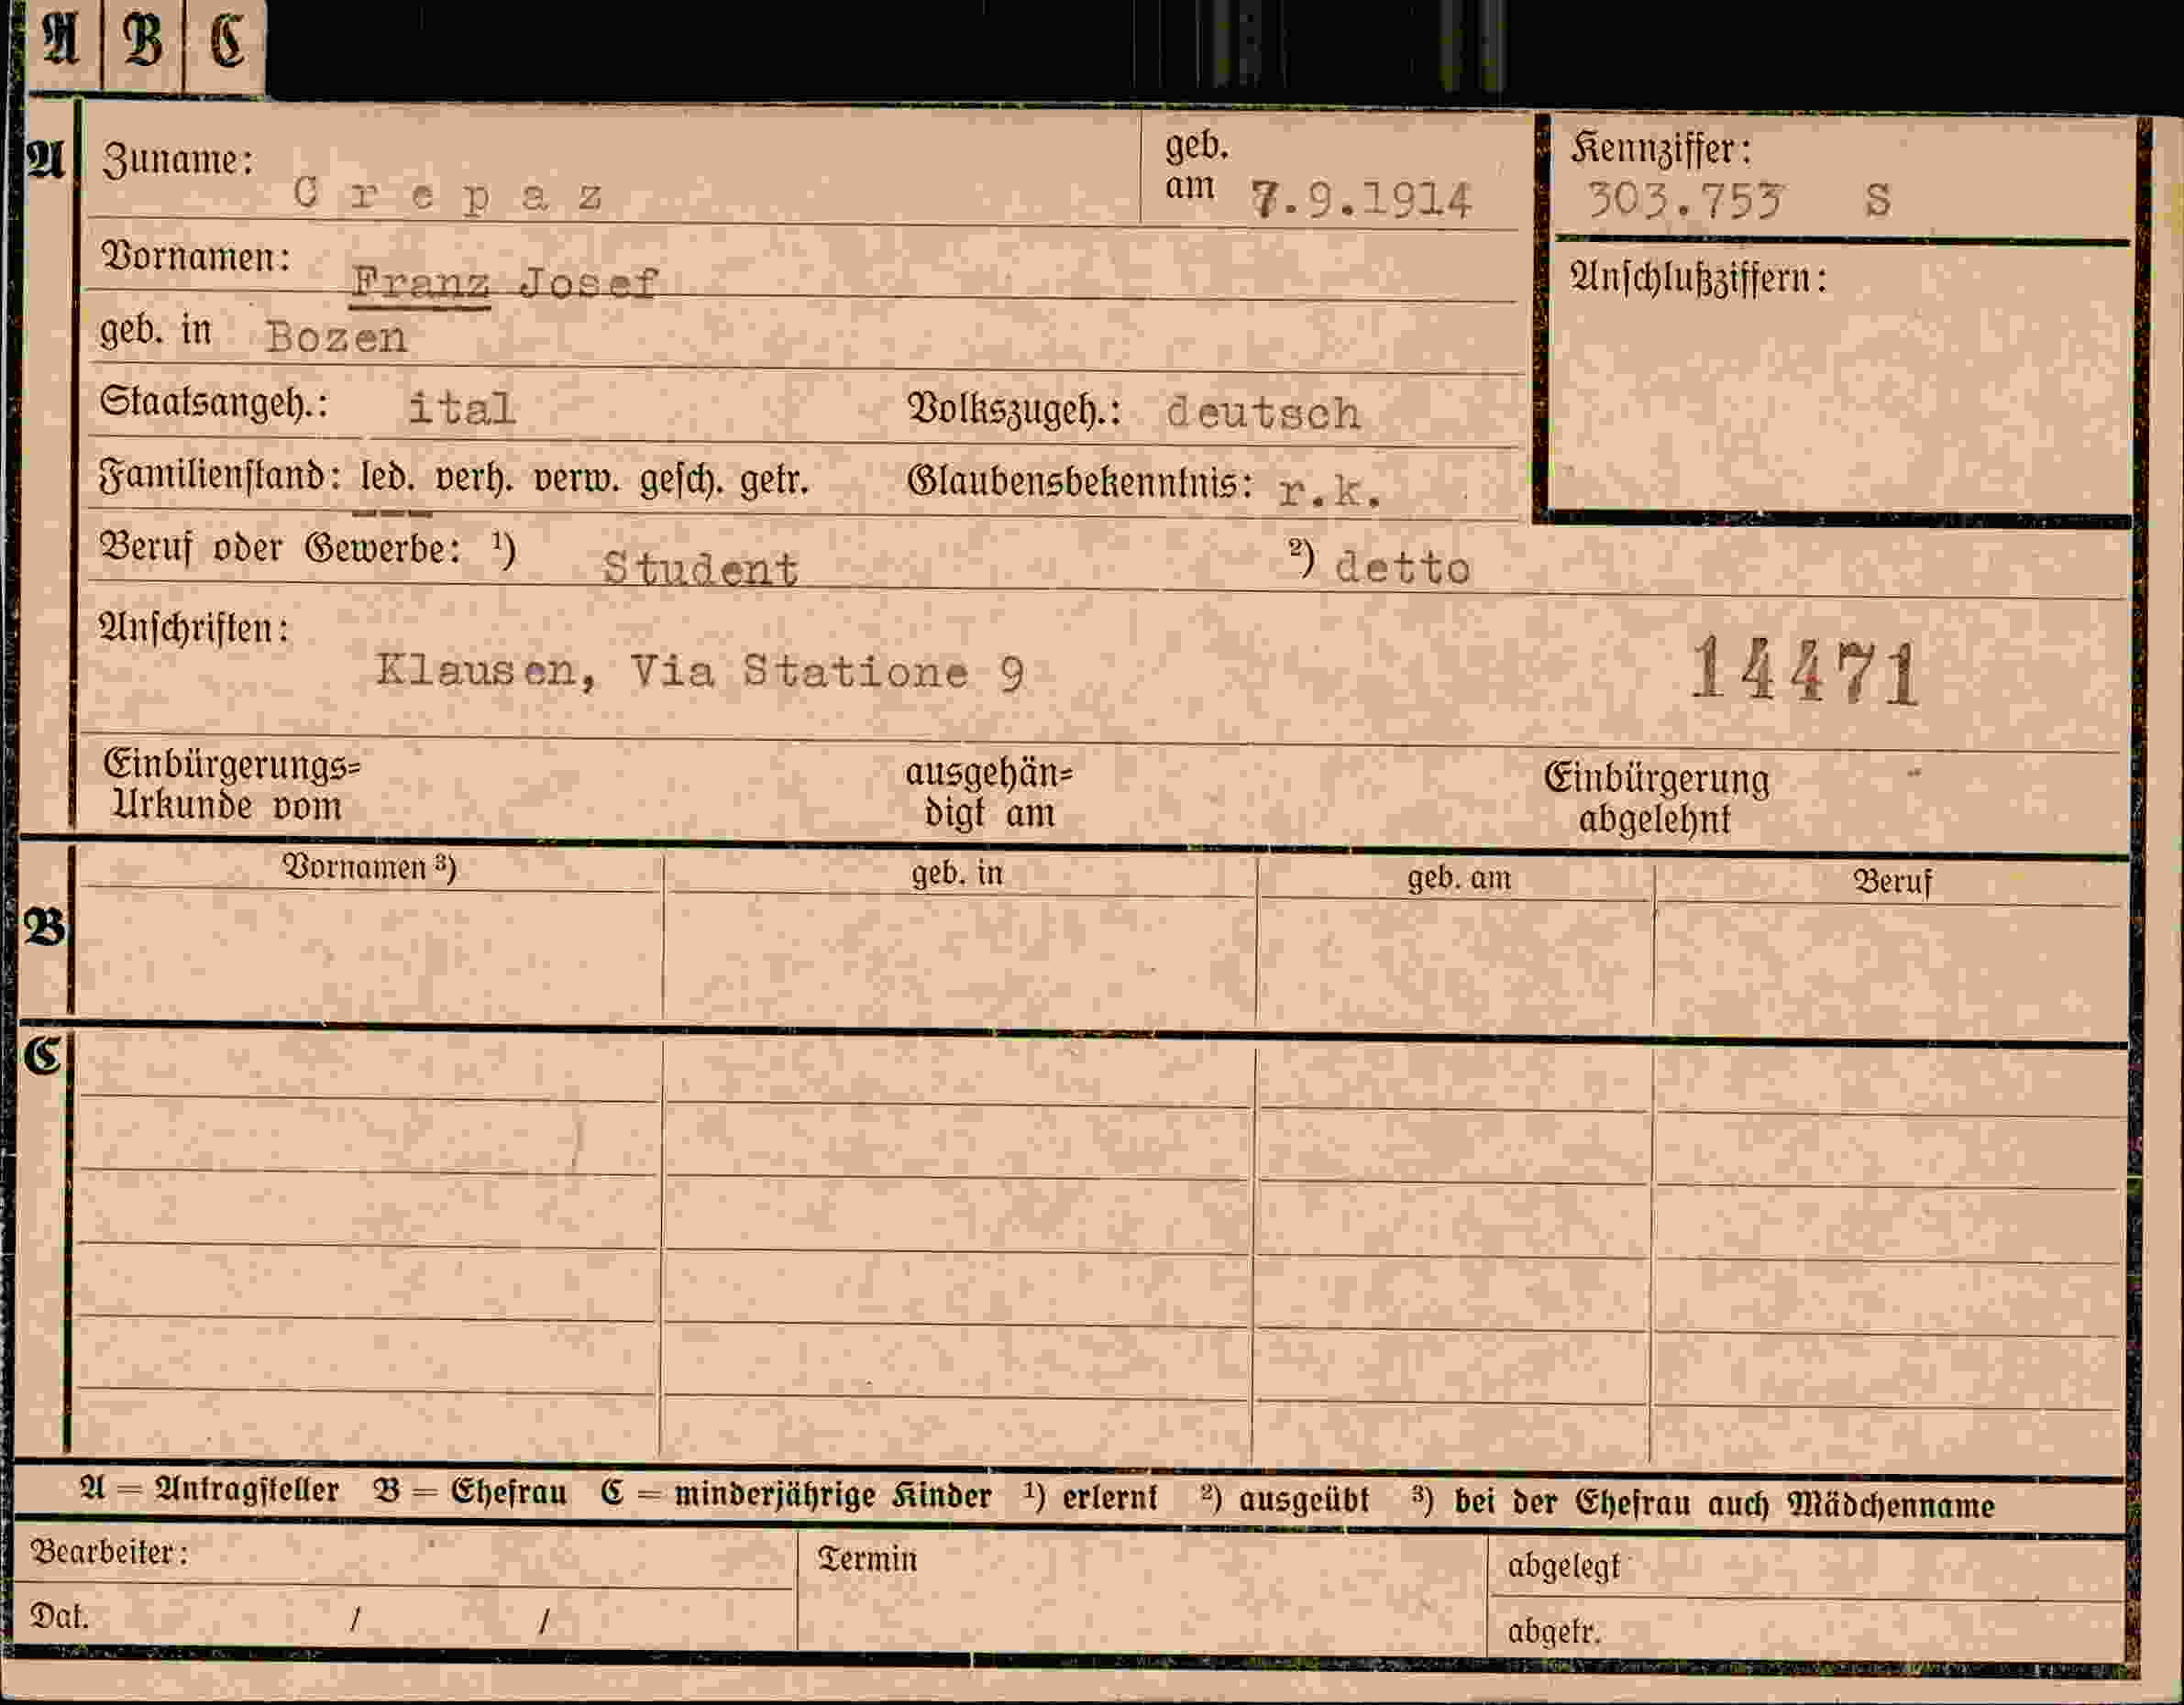 A B C
A Zuname: Crepaz geb. am 7.9.1914 Kennziffer: 303.753 S
Vornamen: Franz Josef Anschlußziffern:
geb. in Bozen
Staatsangeh.: ital Volkszugeh.: deutsch
Familienstand: led. verh. verw. gesch. getr. Glaubensbekenntnis: r.k.
Beruf oder Gewerbe: ¹) Student ²) detto
Anschriften:
Klausen, Via Statione 9 14471
Einbürgerungs= ausgehän= Einbürgerung
Urkunde vom digt am abgelehnt
Vornamen ³) geb. in geb. am Beruf
B
C
A = Antragsteller B = Ehefrau C = minderjährige Kinder ¹) erlernt ²) ausgeübt ³) bei der Ehefrau auch Mädchenname
Bearbeiter: Termin abgelegt
Dat. / / abgetr.